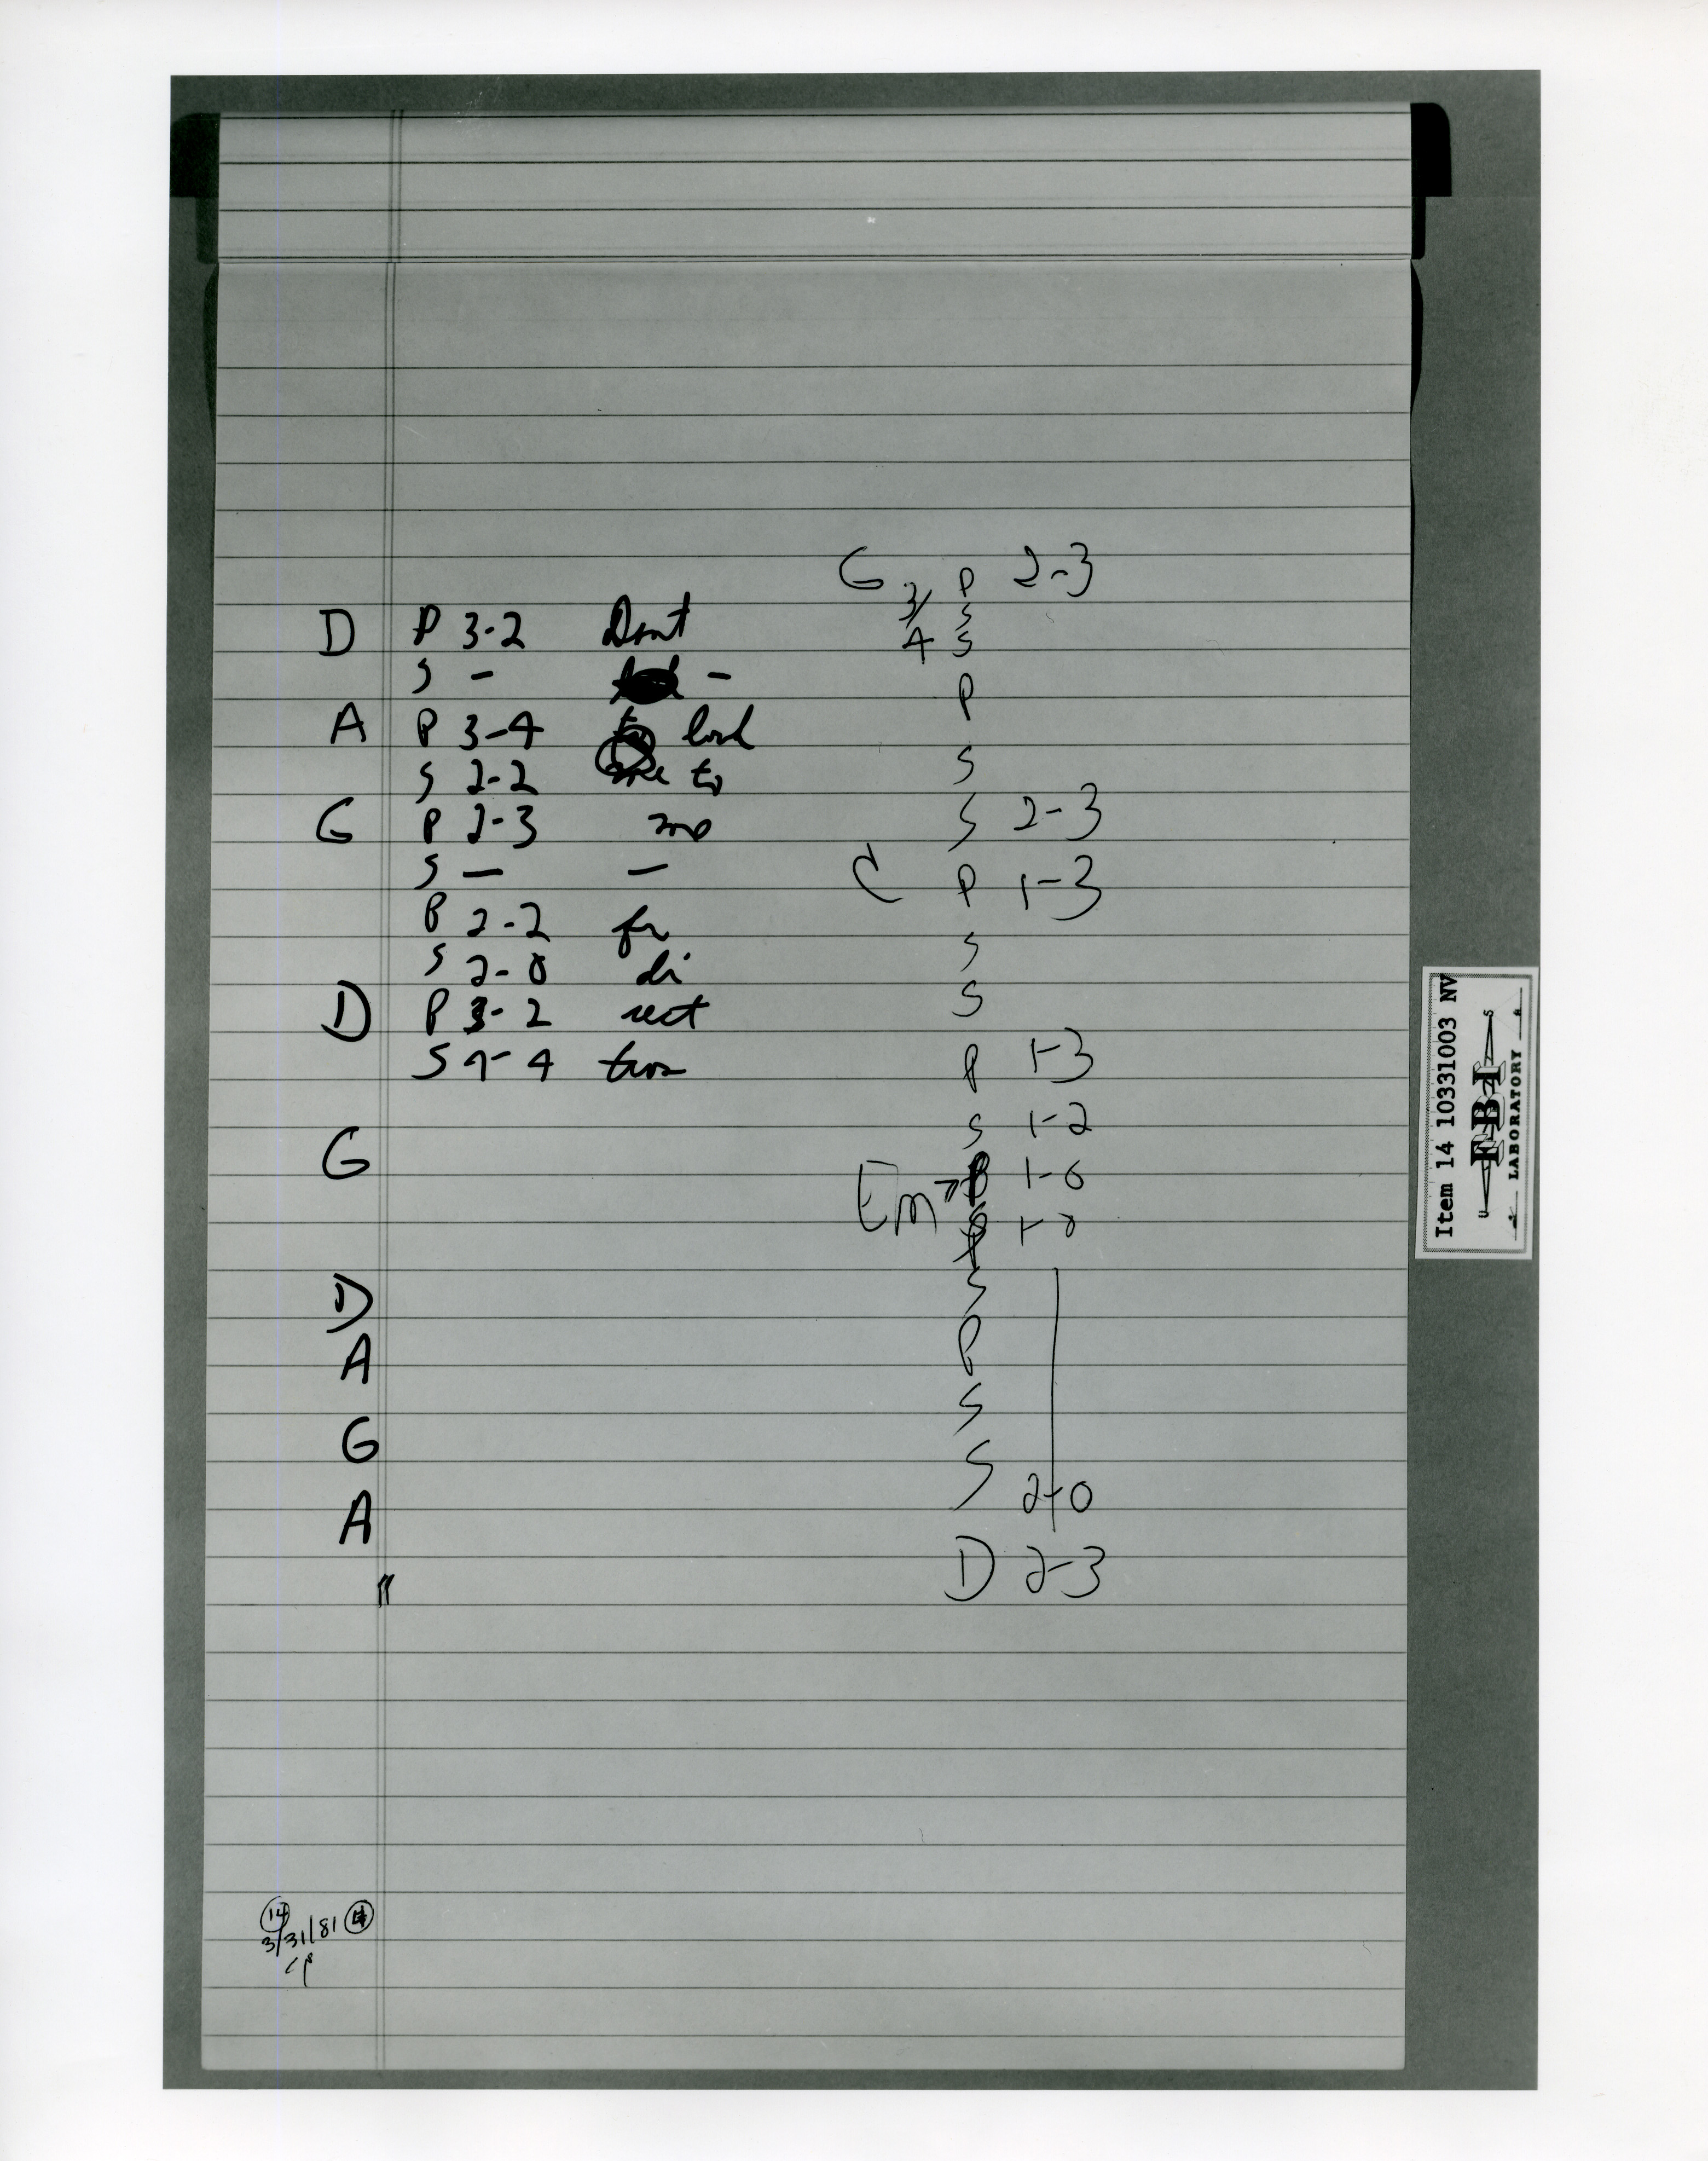 D P 3-2 Dont
S - -
A P 3-4 look
S 2-2 to
G P 2-3 me
S - -
P 2-2 for
S 2-0 di
D P 3-2 rect
S 4-4 tion
G
D
A
G
A
"
G P 2-3
3/4 S
S
P
S
S 2-3
C P 1-3
S
S
P 1-3
S 1-2
Em 1-0
1-0
S
P
S
S 2-0
D 2-3
14
3/31/81
Item 14 10331003 NV
U S
FBI
LABORATORY